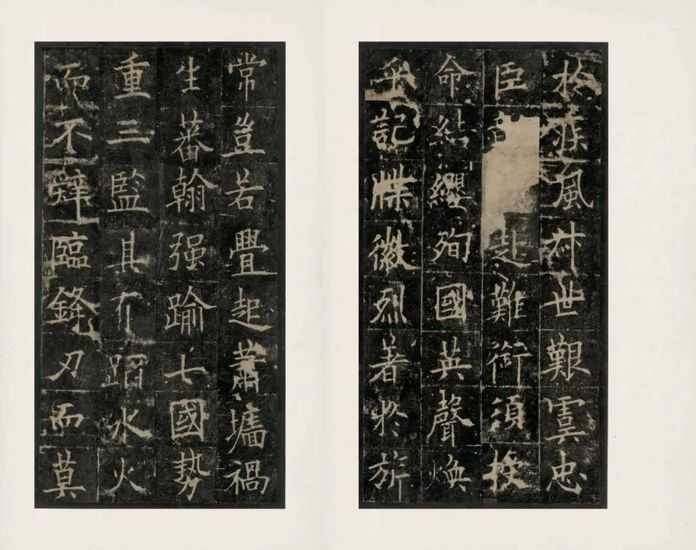 於疾風叔世艱虞忠
臣赴難銜須授
命結纓殉國英聲煥
乎記牒徽烈著於旂
常豈若舋起蕭墻禍
生蕃翰强踰七國勢
重三監其有蹈水火
而不辭臨鋒刃而莫